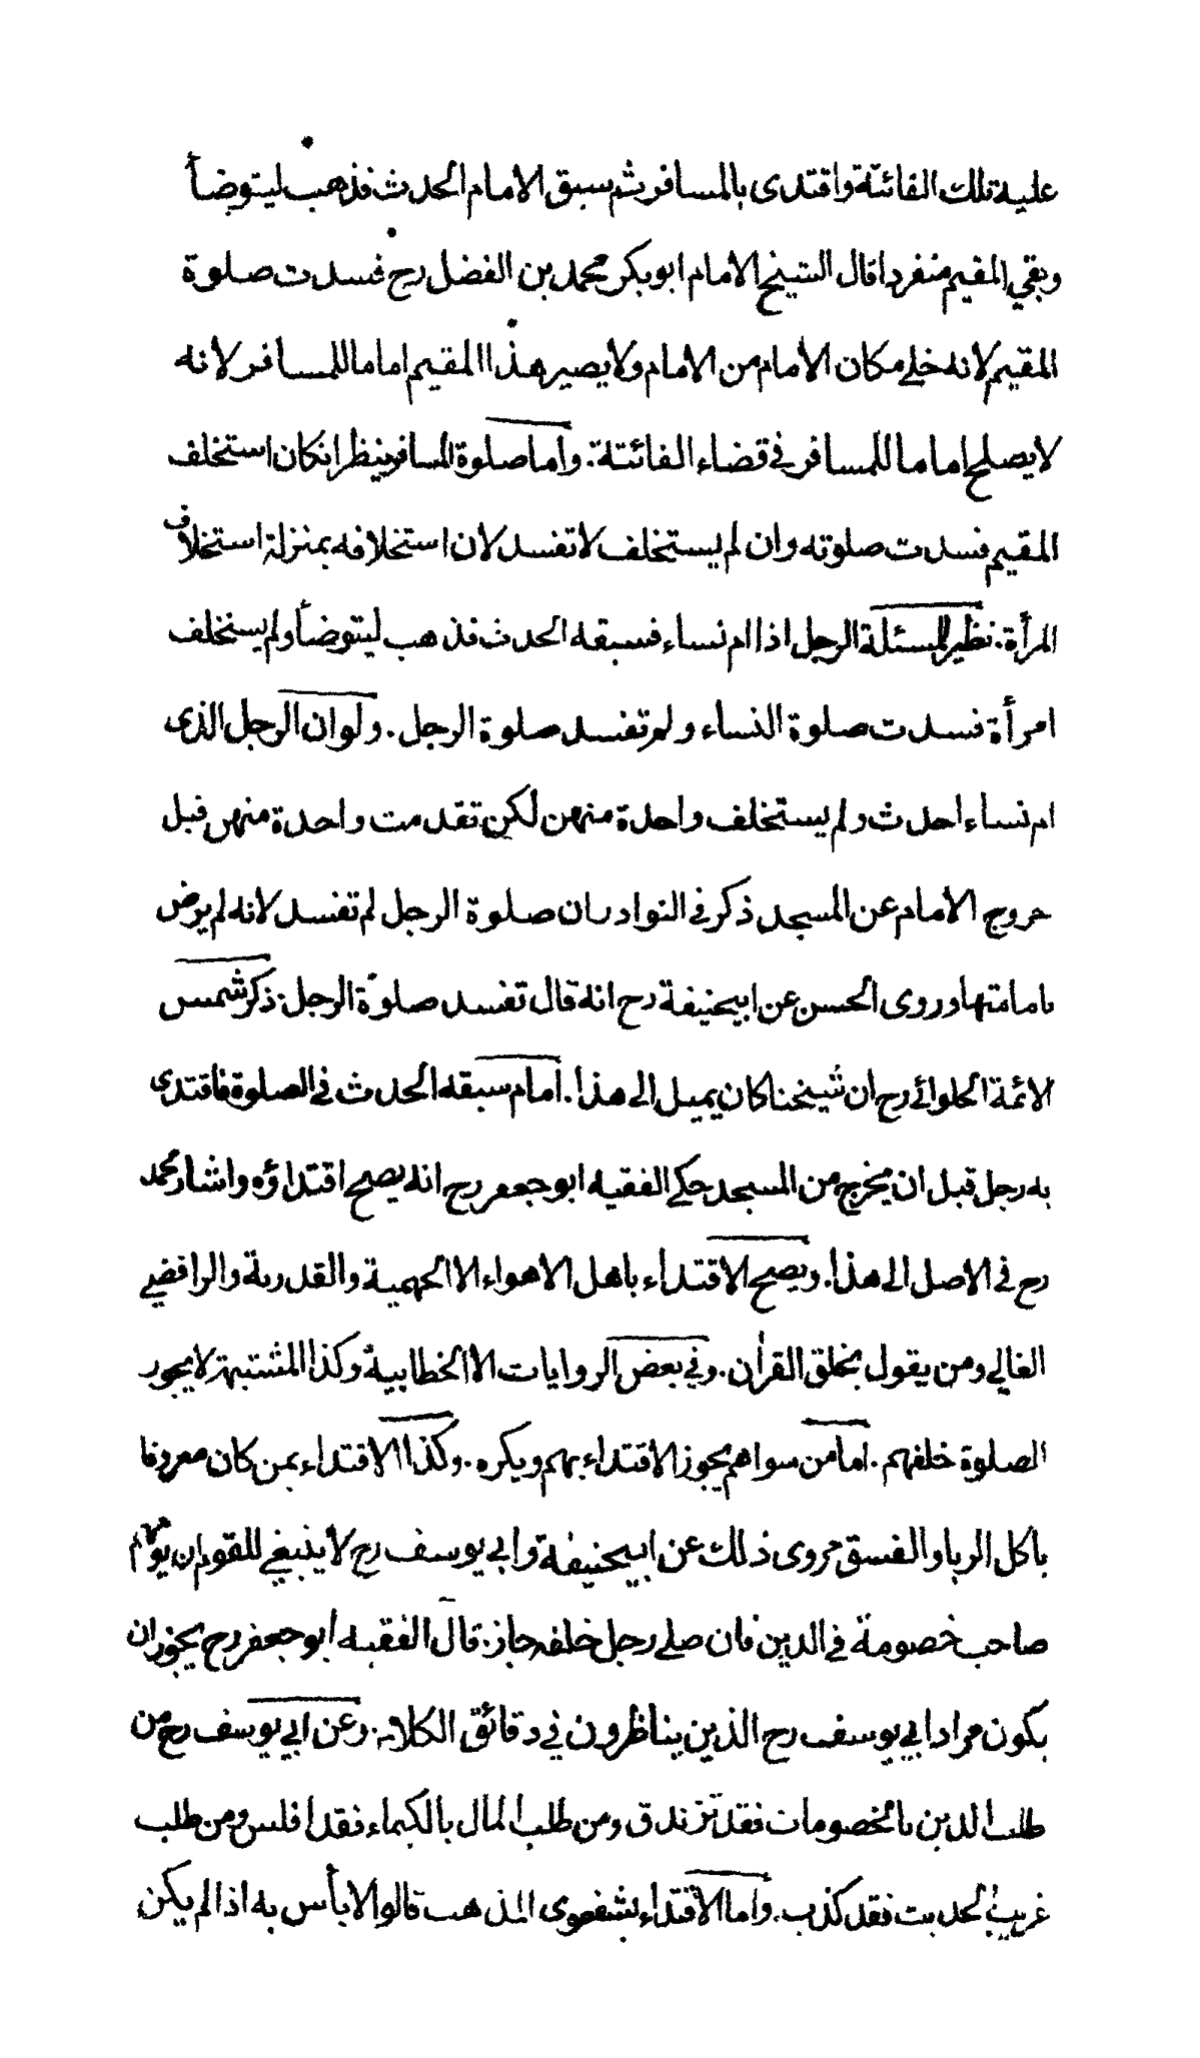 عليه تلك الفائتة واقتدى بالمسافر ثم سبق الامام الحدث فذهب ليتوضأ
وبقي المقيم منفردا قال الشيخ الامام ابو بكر محمد بن الفضل رح فسدت صلوة
المقيم لانه خلي مكان الامام من الامام ولا يصير هذا المقيم اماما للمسافر لانه
لا يصلح اماما للمسافر في قضاء الفائتة . واما صلوة المسافر ينظر انكان استخلف
المقيم فسدت صلوته وان لم يستخلف لا تفسد لان استخلافه بمنزلة استخلاف
المرأة . نظير المسئلة الرجل اذا ام نساء فسبقه الحدث فذهب ليتوضأ ولم يستخلف
امرأة فسدت صلوة النساء ولم تفسد صلوة الرجل . ولو ان الرجل الذى
ام نساء احدث ولم يستخلف واحدة منهن لكن تقدمت واحدة منهن قبل
خروج الامام عن المسجد ذكر في النوادر ان صلوة الرجل لم تفسد لانه لم يرض
بامامتها وروى الحسن عن ابيحنيفة رح انه قال تفسد صلوة الرجل . ذكر شمس
الائمة الحلوائي رح ان شيخنا كان يميل الى هذا . امام سبقه الحدث في الصلوة فاقتدى
به رجل قبل ان يخرج من المسجد حكي الفقيه ابو جعفر رح انه يصح اقتداؤه واشار محمد
رح في الاصل الى هذا . ويصح الاقتداء باهل الاهواء الا الجهمية والقدرية والرافضي
الغالي ومن يقول بخلق القرأن . وفي بعض الروايات الا الخطابية وكذا المشتبهة لا يجوز
الصلوة خلفهم . اما من سواهم يجوز الاقتداء بهم ويكره . وكذا الاقتداء بمن كان معروفا
باكل الربا والفسق مروى ذلك عن ابيحنيفة وابي يوسف رح لا ينبغي للقوم ان يؤمهم
صاحب خصومة في الدين فان صلي رجل خلفه جاز . قال الفقيه ابو جعفر رح يجوز ان
يكون مراد ابي يوسف رح الذين يناظرون في دقائق الكلام . وعن ابي يوسف رح من
طلب الدين بالخصومات فقد تزندق ومن طلب المال بالكيماء فقد افلس ومن طلب
غريب الحديث فقد كذب . واما الاقتداء بشفعوى المذهب قالوا لا بأس به اذا لم يكن